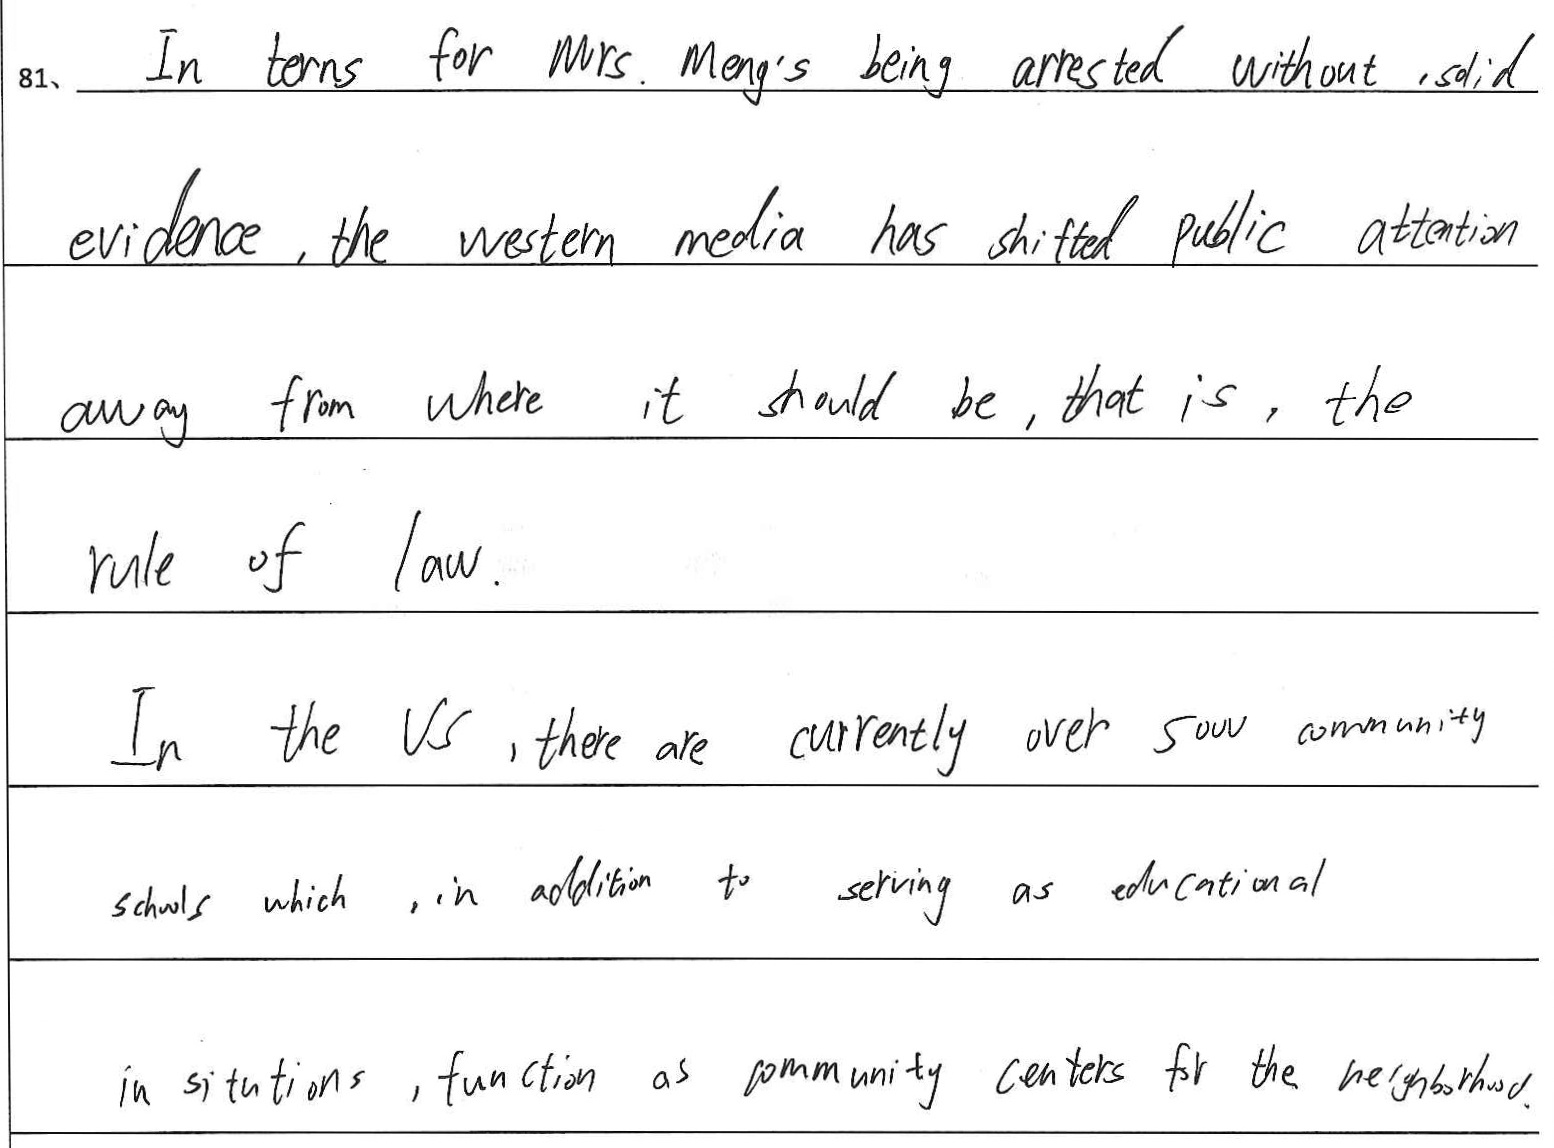 81、 In terns for Mrs. Meng's being arrested without solid
evidence, the western media has shifted public attention
away from where it should be, that is, the
rule of law.
In the US, there are currently over 5000 community
schools which, in addition to serving as educational
in situtions, function as community centers for the neighborhood.